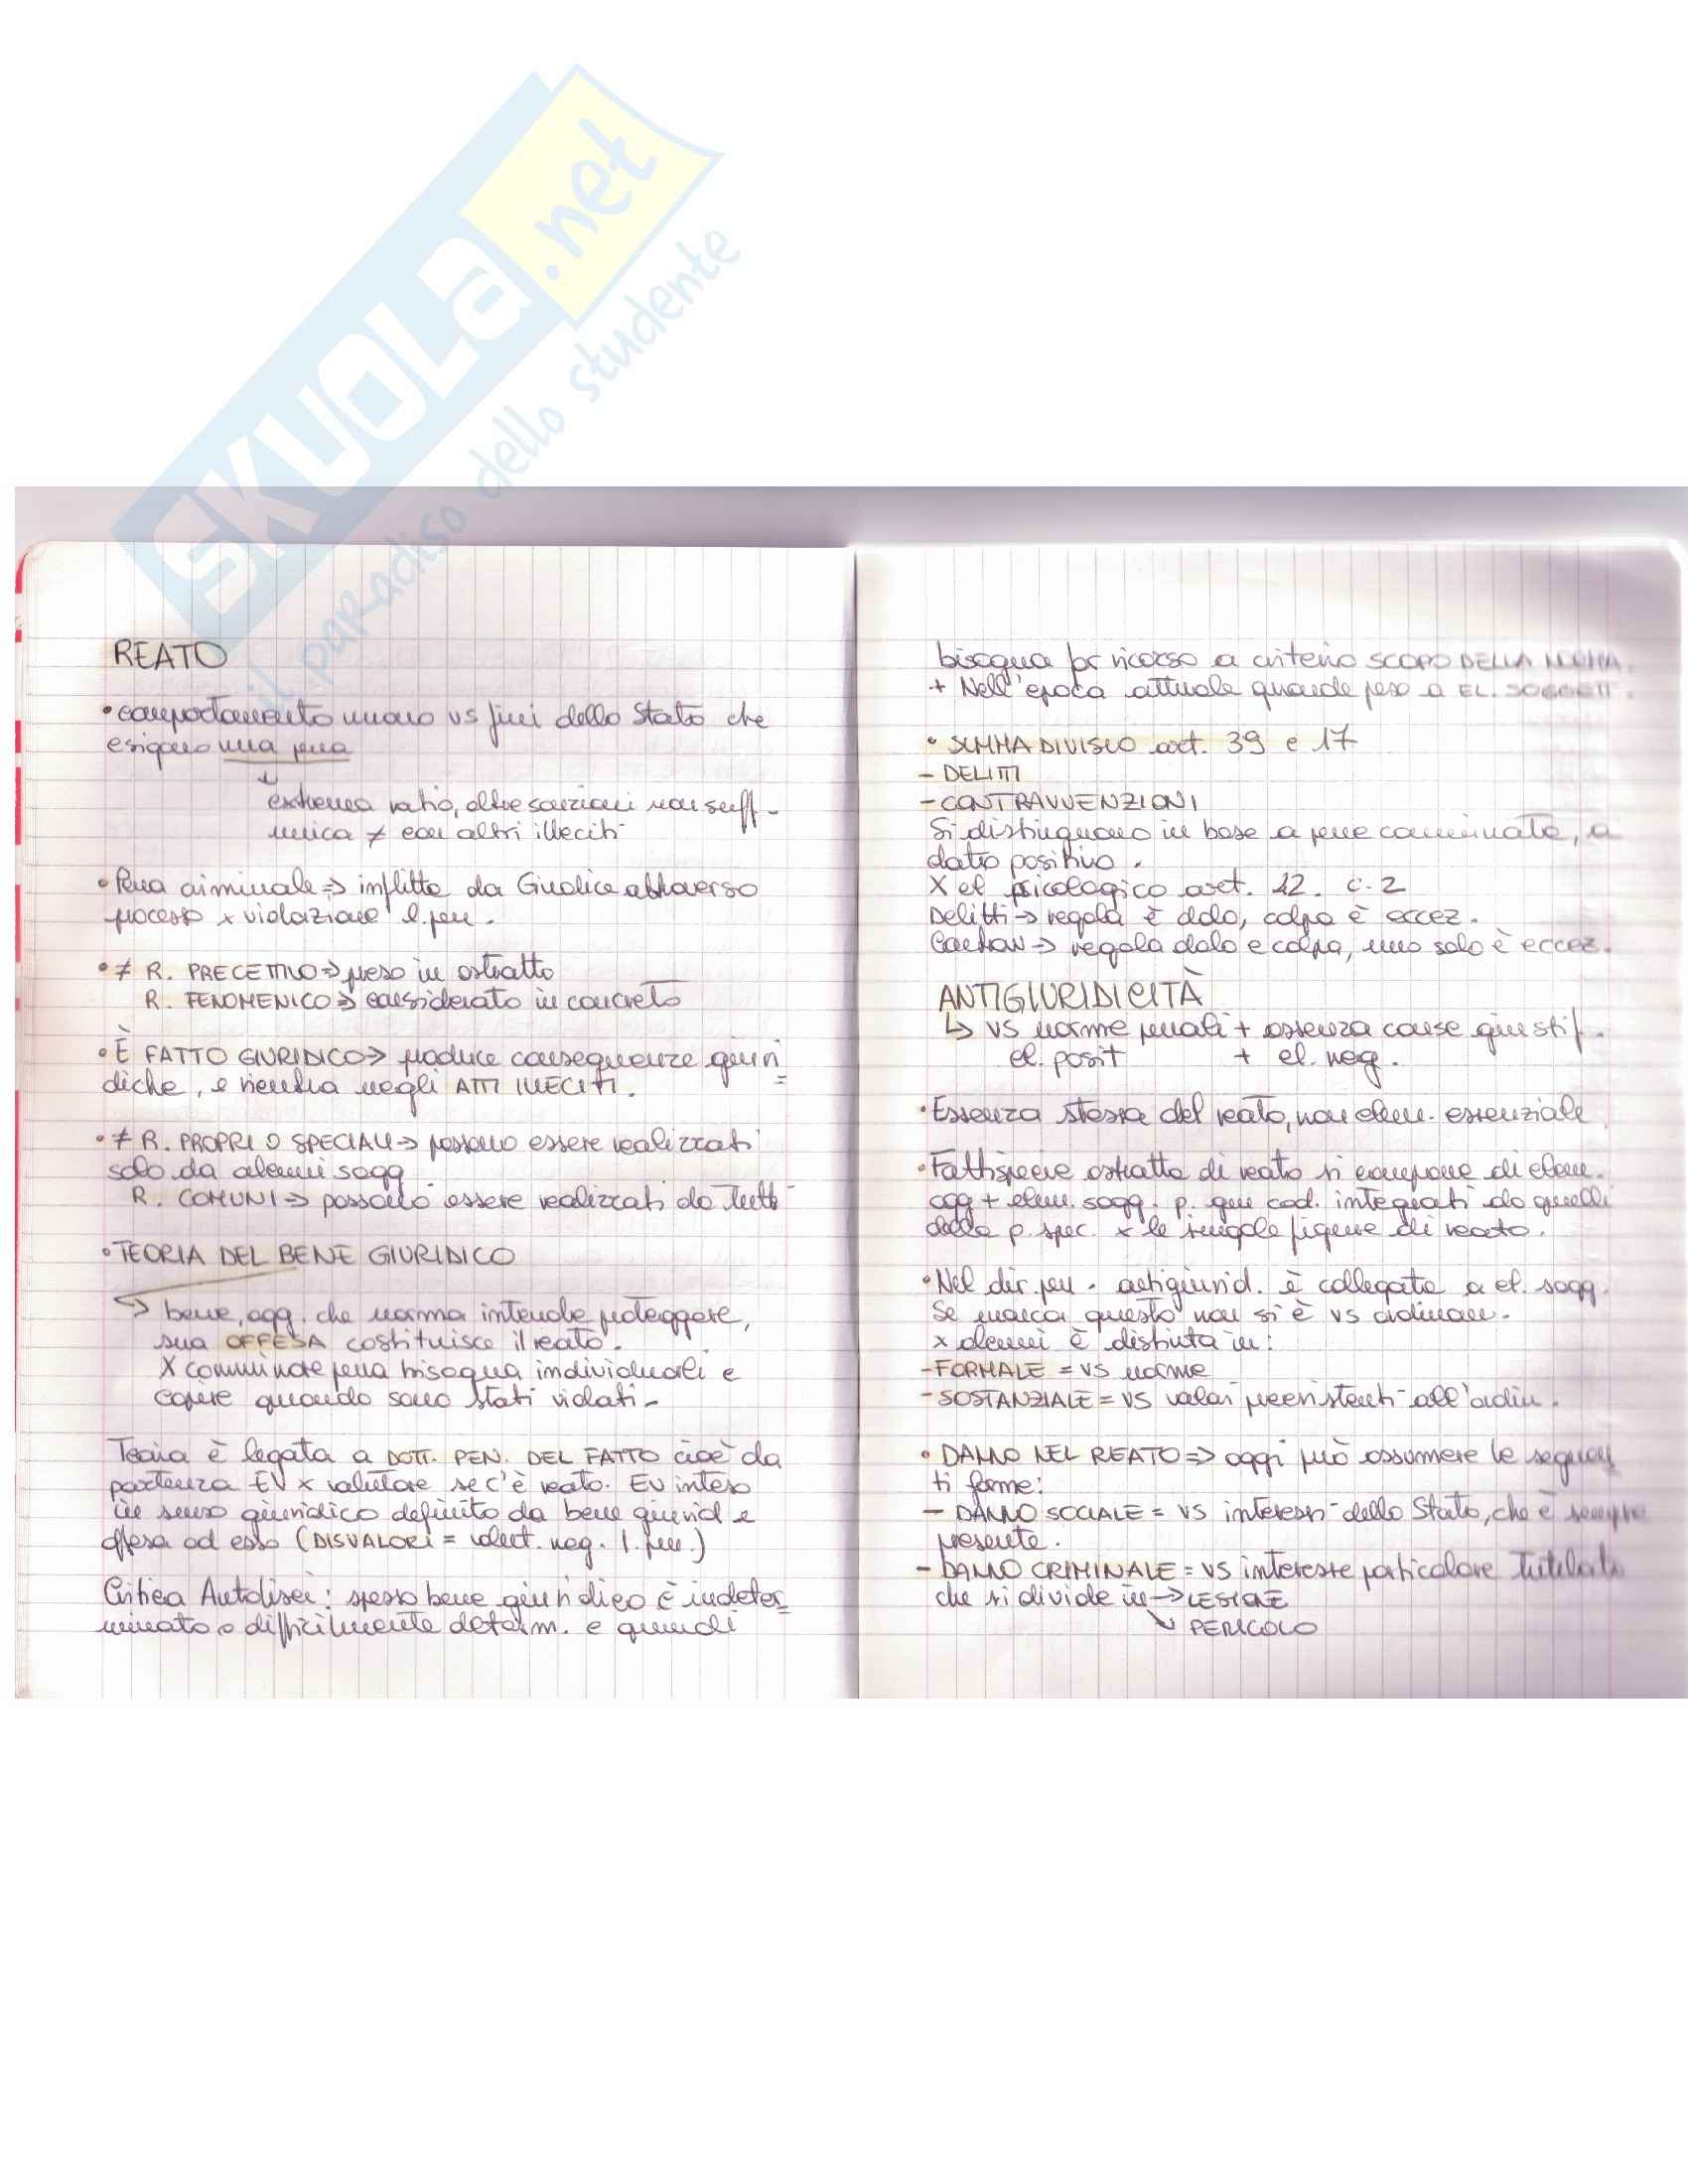 SKUOLA.net
il paradiso dello studente
REATO
• comportamento umano vs fini dello Stato che
esigono una pena
extrema ratio, altre sanzioni non suff.
unica ≠ con altri illeciti
• Pena criminale => inflitta da Giudice attraverso
processo x violazione l. pen.
• ≠ R. PRECETTIVO => preso in astratto
R. FENOMENICO => considerato in concreto
• È FATTO GIURIDICO => produce conseguenze giuri
diche, e rientra negli ATTI ILLECITI.
• ≠ R. PROPRI O SPECIALI => possono essere realizzati
solo da alcuni sogg
R. COMUNI => possono essere realizzati da tutti
• TEORIA DEL BENE GIURIDICO
-> bene, ogg. che norma intende proteggere,
sua OFFESA costituisce il reato.
X comminare pena bisogna individuarli e
capire quando sono stati violati.
Teoria è legata a DOTT. PEN. DEL FATTO cioè da
partenza EV x valutare se c'è reato. EV inteso
in senso giuridico definito da bene giurid e
offesa ad esso (DISVALORI = valut. neg. l. pen.)
Critica Antolisei: spesso bene giuridico è indeter=
minato o difficilmente determ. e quindi
bisogna far ricorso a criterio SCOPO DELLA NORMA.
+ Nell'epoca attuale grande peso a EL. SOGGETT.
• SUMMA DIVISIO art. 39 e 17
- DELITTI
- CONTRAVVENZIONI
Si distinguono in base a pene comminate, a
dato positivo.
X el psicologico art. 42. c. 2
Delitti -> regola è dolo, colpa è eccez.
Contrav -> regola dolo e colpa, uno solo è eccez.
ANTIGIURIDICITÀ
↳ vs norme penali + assenza cause giustif.
el. posit + el. neg.
• Essenza stessa del reato, non elem. essenziale
• Fattispecie astratta di reato si compone di elem.
ogg + elem. sogg. p. gen cod. integrati da quelli
della p. spec. x le singole figure di reato.
• Nel dir. pen. antigiurid. è collegata a el. sogg.
Se manca questo non si è vs ordinam.
x alcuni è distinta in:
- FORMALE = vs norme
- SOSTANZIALE = vs valori preesistenti all'ordin.
• DANNO NEL REATO => oggi può assumere le seguen
ti forme:
- DANNO SOCIALE = vs interessi dello Stato, che è sempre
presente.
- DANNO CRIMINALE = vs interesse particolare tutelato
che si divide in -> LESIONE
↘ PERICOLO